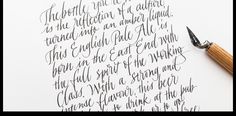 The bottle you
is the reflection of a culture
turned into an amber liquid.
This English Pale Ale is
born in the East End with
the full spirit of the Working
Class. With a strong and
intense flavour, this beer
to drink at the pub